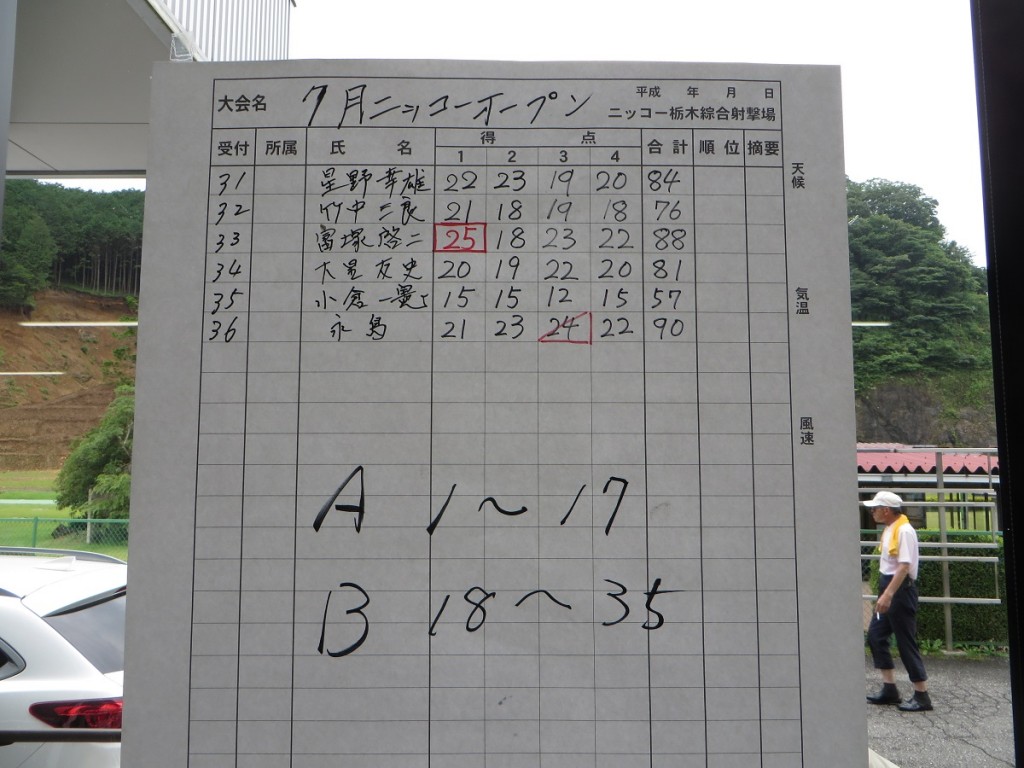 平成 年 月 日
大会名 7月ニッコーオープン ニッコー栃木綜合射撃場
受付 所属 氏名 得点 合計 順位 摘要
1 2 3 4
31 星野幸雄 22 23 19 20 84
32 竹中三良 21 18 19 18 76
33 富塚啓二 25 18 23 22 88
34 大島友史 20 19 22 20 81
35 小倉 15 15 12 15 57
36 永島 21 23 24 22 90
A 1〜17
B 18〜35
天候
気温
風速